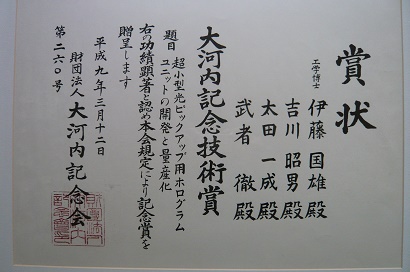 賞状
工学博士 伊藤国雄殿
吉川昭男殿
太田一成殿
武者徹殿
大河内記念技術賞
題目 超小型光ピックアップ用ホログラム
ユニットの開発と量産化
右の功績顕著と認め本会規定により記念賞を
贈呈します
平成九年三月十二日
財団法人 大河内記念会
第二六〇号